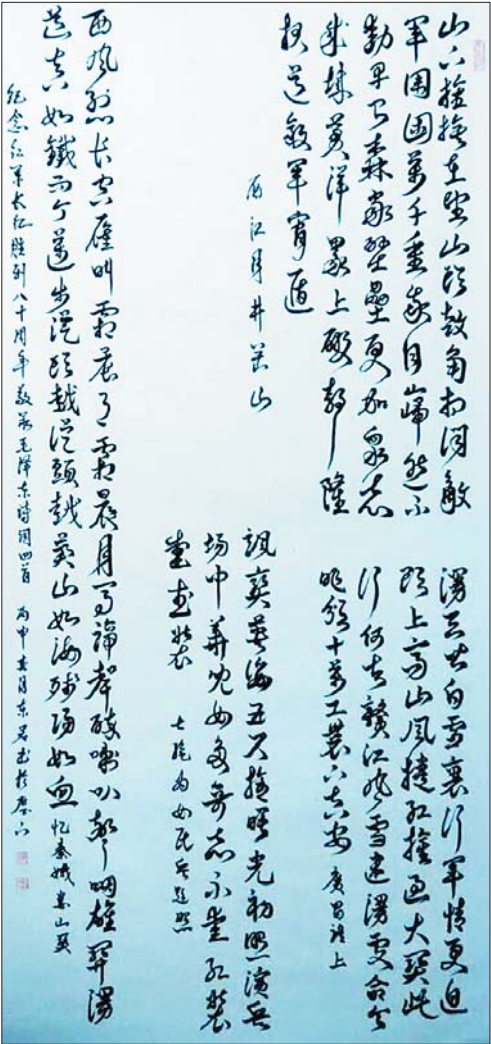 山下旌旗在望山头鼓角相闻敵
军围困萬千重我自岿然不
動早已森嚴壁壘更加眾志
成城黄洋界上砲声隆
报道敵军宵遁
西江月井岡山
漫天皆白雪裏行军情更迫
头上高山风捲红旗过大關此
行何去贛江风雪迷漫處命令
昨颁十萬工農下吉安 廣昌路上
飒爽英姿五尺槍曙光初照演兵
场中華兒女多奇志不爱红装
爱武装 七绝为女民兵题照
西风烈长空雁叫霜晨月霜晨月马蹄聲碎喇叭聲咽雄關漫
道真如鐵而今迈步從头越從頭越蒼山如海残阳如血 忆秦娥娄山關
纪念红军长征胜利八十周年敬录毛泽东诗词四首 丙申春月东君书於